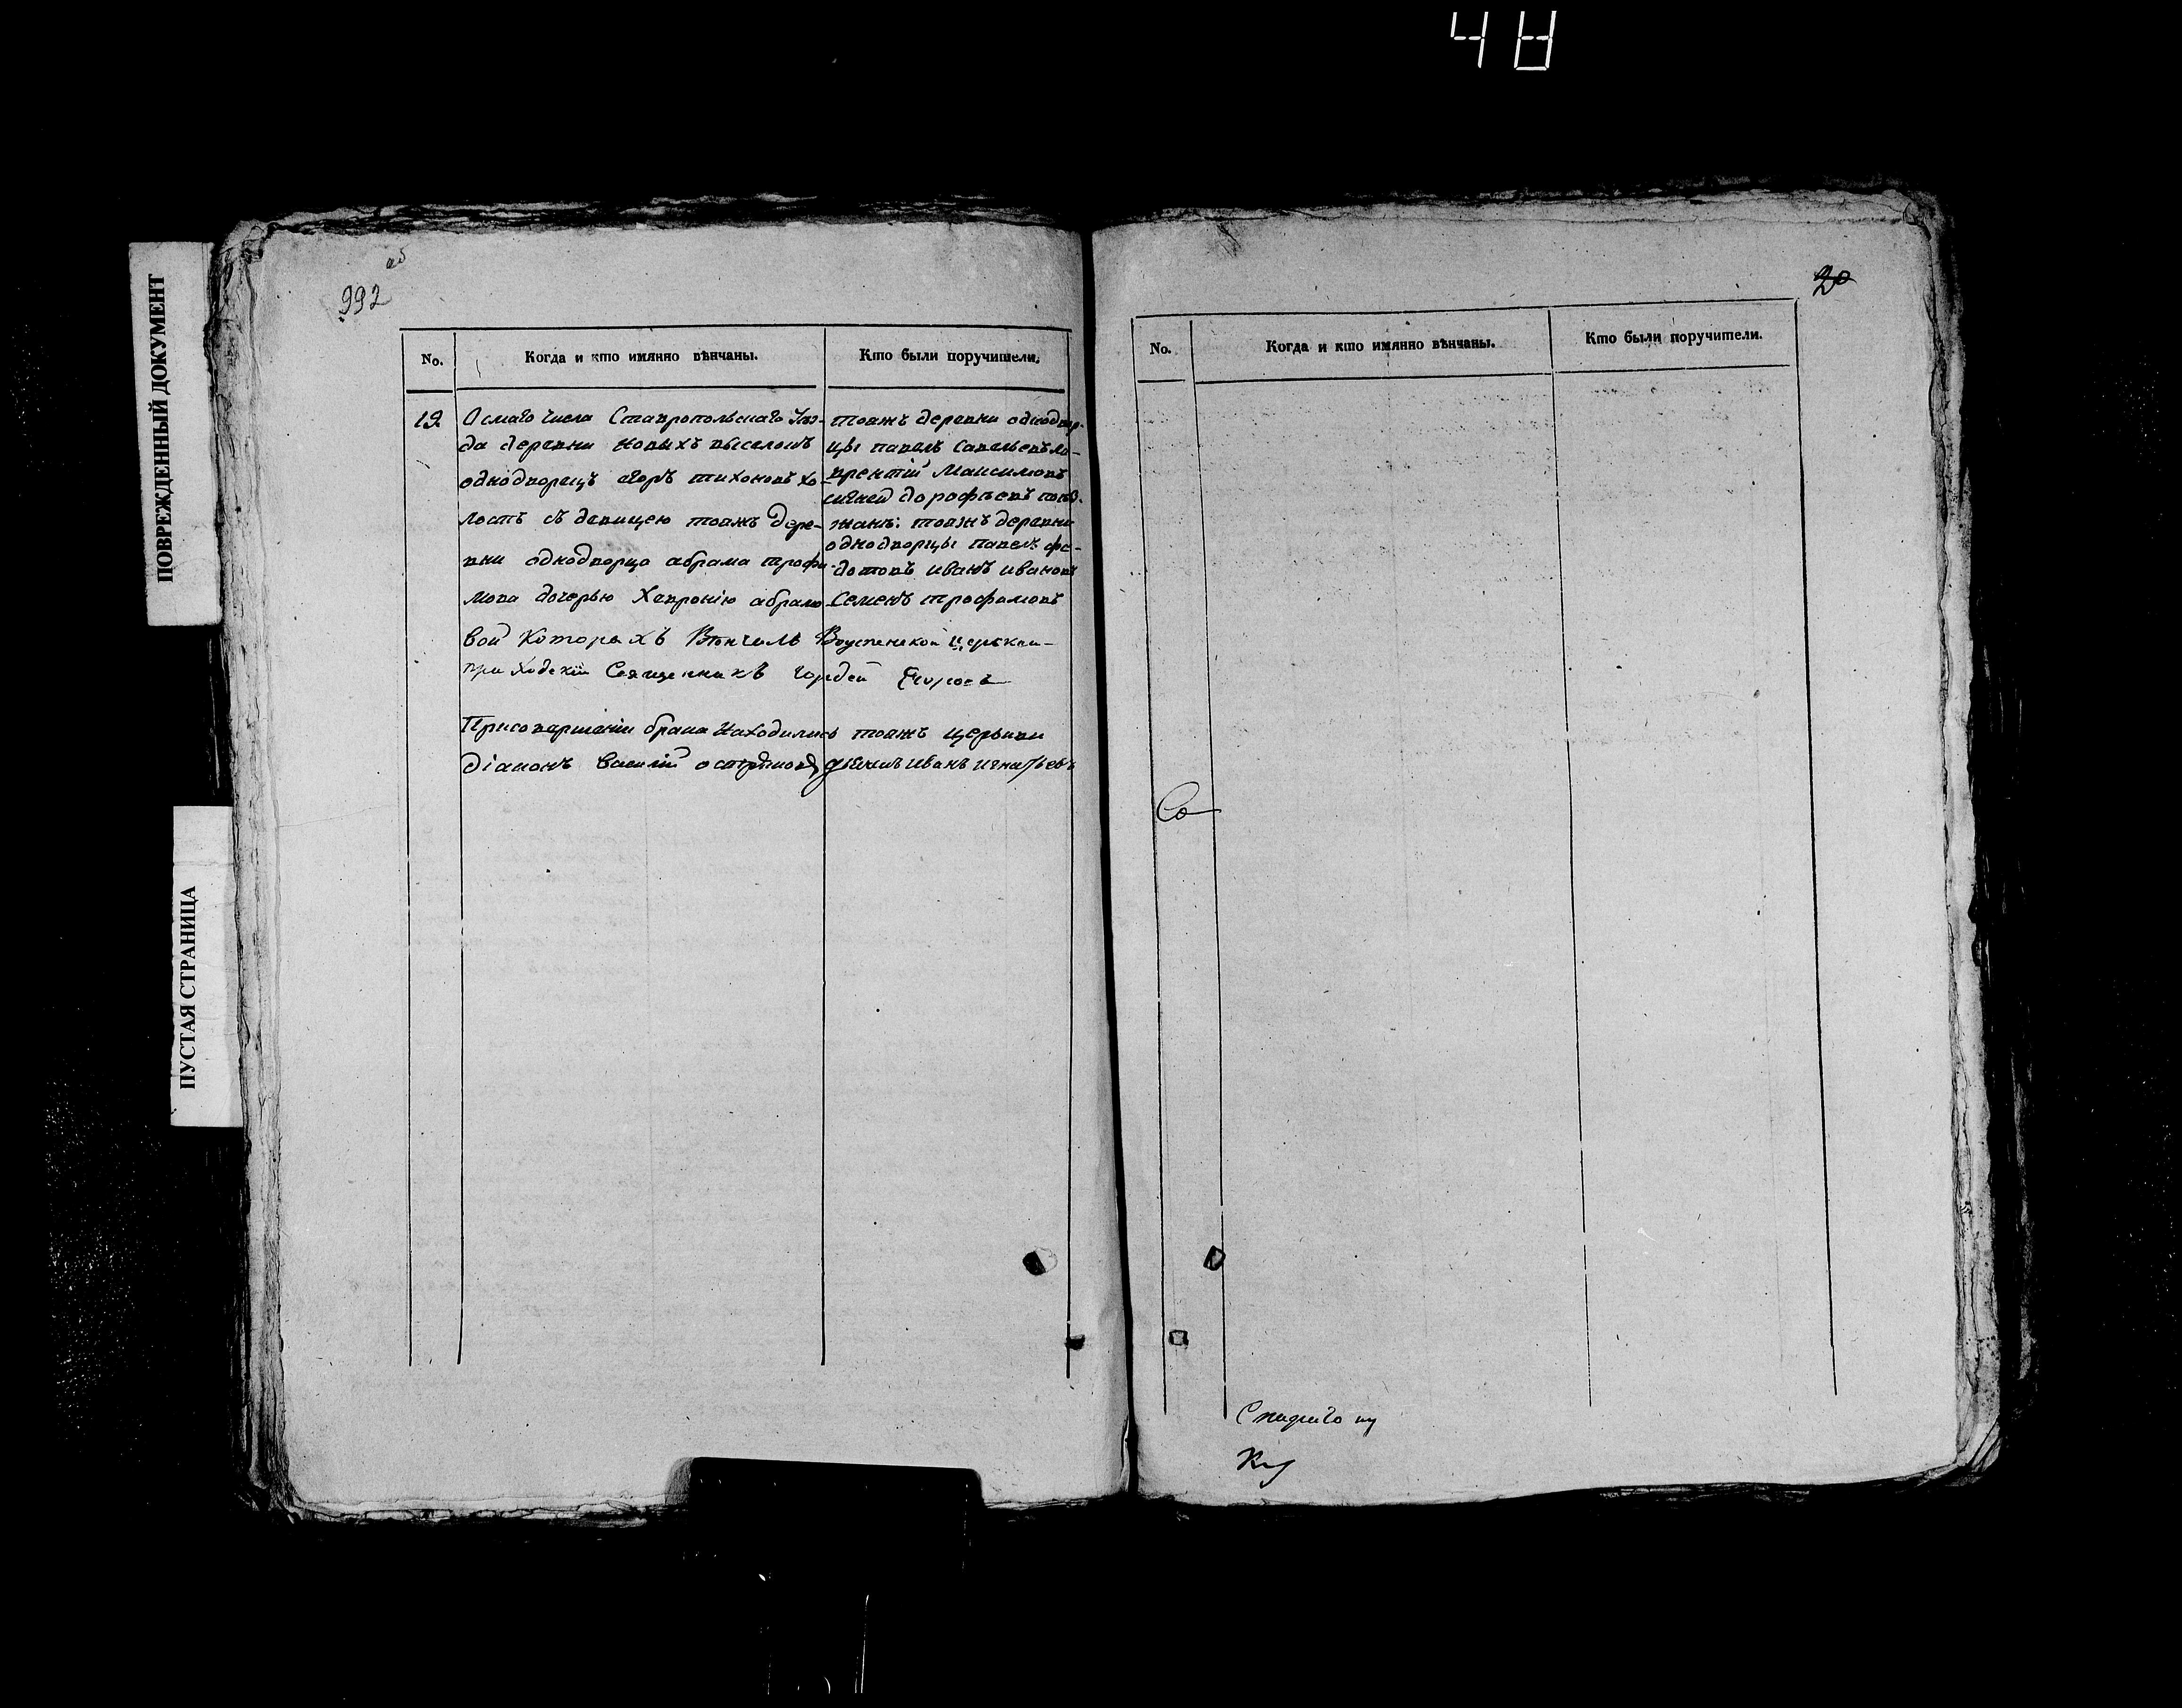 48
ПОВРЕЖДЕННЫЙ ДОКУМЕНТ
ПУСТАЯ СТРАНИЦА
992 об
No. Когда и кто имянно вѣнчаны. Кто были поручители.
19.
Осмаго числа Ставропольскаго Уез-
да деревни новыхъ выселокъ
однодворецъ егоръ тихоновъ хо-
лостъ съ девицею тоежъ дере-
вни однодворца абрама трофи-
мова дочерью Хавронію абрамо-
вой Которыхъ Вѣнчалъ Воуспенской церькви
приходскій Священникъ Гордей
тоежъ деревни однодвор-
цы павелъ савельевъ ла-
врентій Максимовъ
сергей дорофѣевъ поез-
жанъ: тоежъ деревни
однодворцы павелъ фе-
дотовъ иванъ ивановъ
Семенъ трофимовъ
Присовершеніи брака Находились тоежъ церькви
діаконъ василій дьячекъ Иванъ игнатьевъ
20
No. Когда и кто имянно вѣнчаны. Кто были поручители.
Со